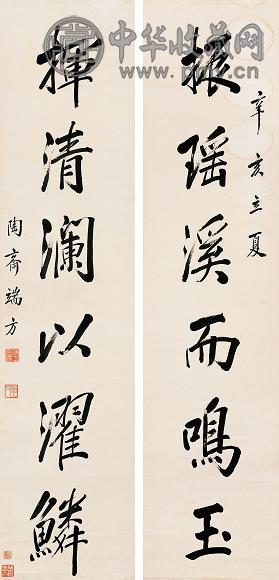 中华收藏网
辛亥立夏
振瑶溪而鳴玉
揮清瀾以濯鱗
陶齋端方